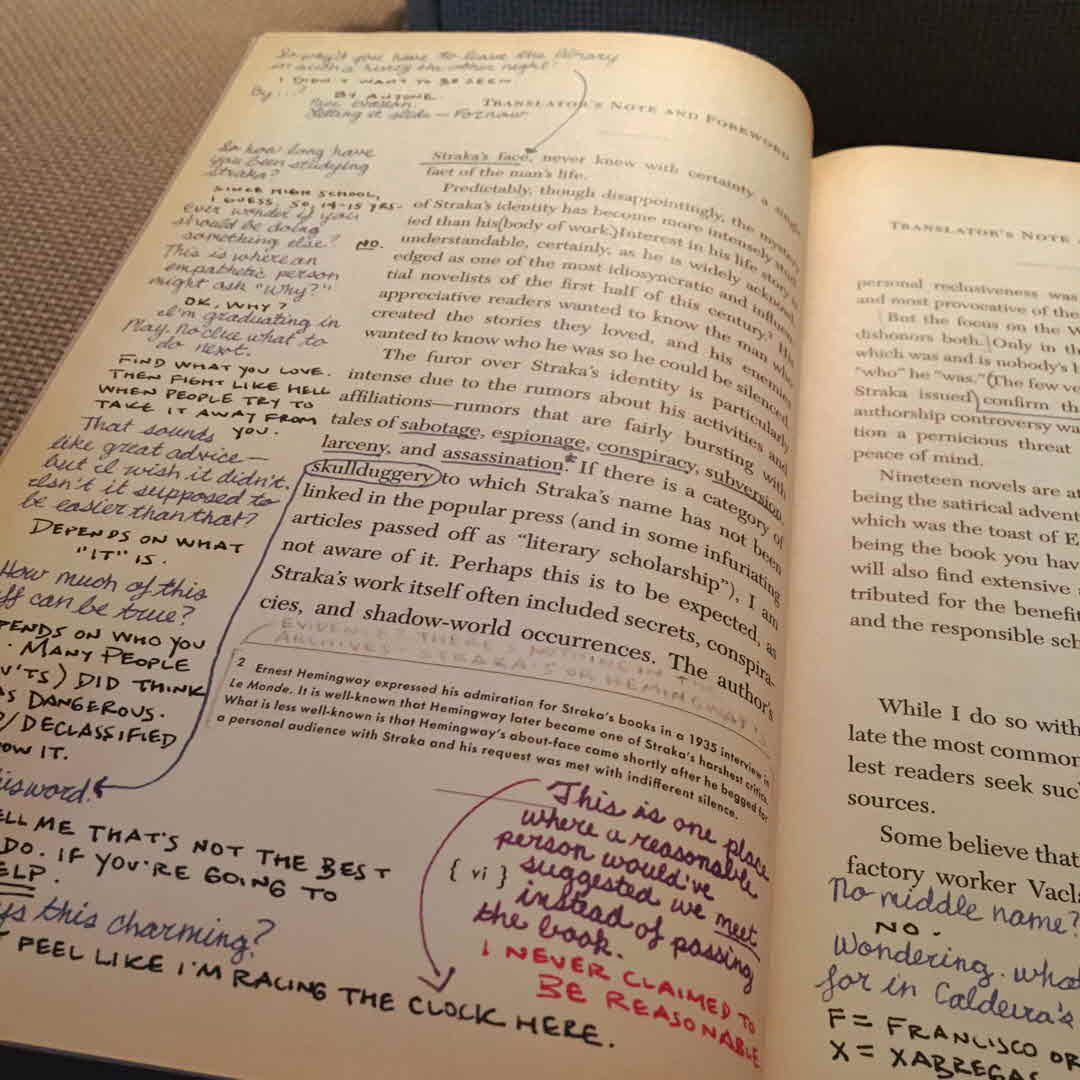 So why'd you have to leave the library
in such a hurry the other night?
I DIDN'T WANT TO BE SEEN
By...?
BY ANYONE.
Nice evasion.
Letting it slide — For now.
TRANSLATOR'S NOTE AND FOREWORD
So how long have
you been studying
Straka?
SINCE HIGH SCHOOL,
I GUESS. SO, 14-15 YRS.
Ever wonder if you
should be doing
something else?
NO.
This is where an
empathetic person
might ask "Why?"
OK, WHY?
I'm graduating in
May, no clue what to
do next.
FIND WHAT YOU LOVE.
THEN FIGHT LIKE HELL
WHEN PEOPLE TRY TO
TAKE IT AWAY FROM
YOU.
That sounds
like great advice—
but I wish it didn't.
Isn't it supposed to
be easier than that?
DEPENDS ON WHAT
"IT" IS.
How much of this
ff can be true?
PENDS ON WHO YOU
. MANY PEOPLE
V'TS) DID THINK
AS DANGEROUS.
/DECLASSIFIED
OW IT.
his word!
ELL ME THAT'S NOT THE BEST
DO. IF YOU'RE GOING TO
ELP.
this charming?
FEEL LIKE I'M RACING THE CLOCK HERE.
Straka's face, never knew with certainty a single
fact of the man's life.
Predictably, though disappointingly, the mystery
of Straka's identity has become more intensely stud-
ied than his body of work. Interest in his life story is
understandable, certainly, as he is widely acknowl-
edged as one of the most idiosyncratic and influen-
tial novelists of the first half of this century.² His
appreciative readers wanted to know the man who
created the stories they loved, and his enemies
wanted to know who he was so he could be silenced.
The furor over Straka's identity is particularly
intense due to the rumors about his activities and
affiliations—rumors that are fairly bursting with
tales of sabotage, espionage, conspiracy, subversion,
larceny, and assassination.* If there is a category of
skullduggery to which Straka's name has not been
linked in the popular press (and in some infuriating
articles passed off as "literary scholarship"), I am
not aware of it. Perhaps this is to be expected, as
Straka's work itself often included secrets, conspira-
cies, and shadow-world occurrences. The author's
EVIDENCE? THERE'S NOTHING IN THE
ARCHIVES—STRAKA'S OR HEMINGWAY'S
2 Ernest Hemingway expressed his admiration for Straka's books in a 1935 interview in
Le Monde. It is well-known that Hemingway later became one of Straka's harshest critics.
What is less well-known is that Hemingway's about-face came shortly after he begged for
a personal audience with Straka and his request was met with indifferent silence.
This is one place
where a reasonable
person would've
suggested we meet
instead of passing
the book.
{ vi }
I NEVER CLAIMED TO
BE REASONABLE
TRANSLATOR'S NOTE
personal reclusiveness was
and most provocative of the
But the focus on the W
dishonors both. Only in th
which was and is nobody's
"who" he "was." (The few ve
Straka issued confirm th
authorship controversy wa
tion a pernicious threat
peace of mind.
Nineteen novels are at
being the satirical advent
which was the toast of E
being the book you hav
will also find extensive
tributed for the benefit
and the responsible sch
While I do so with
late the most common
lest readers seek suc
sources.
Some believe that
factory worker Vacla
No middle name?
NO.
Wondering what
for in Caldeira's
F = FRANCISCO OR
X = XABREGAS